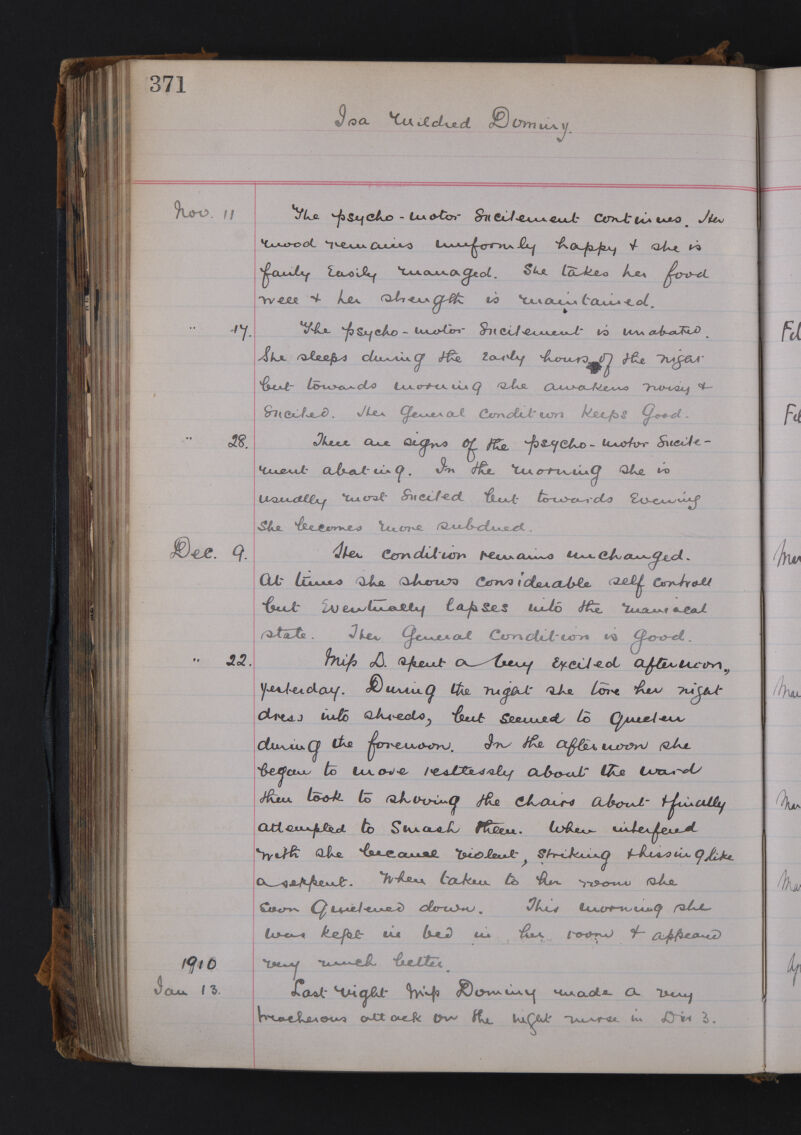 371
Isa Mildred Dominy.
Nov. 11 The psycho-motor Excitement continues. Her
mood remains uniformly happy & she is
fairly Easily managed. She takes her food
well & her strength is maintained.
" 17. The psycho-motor Excitement is unabated.
She sleeps during the Early hours of the night
but towards morning she awakens noisy &
Excited. Her General Condition Keeps Good.
" 28. There are signs of the psycho-motor Excite-
ment abating. In the morning she is
usually most Excited but towards Evening
She becomes more subdued.
Dec. 9. Her condition remains unchanged.
At times she shows considerable self controll
but Eventually lapses into the maniacal
state. Her General Condition is Good.
" 22. Miss D. spent a very Excited afternoon,
yesterday. During the night she tore her night
dress into shreds, but seemed to Quieten
during the forenoon. In the afternoon she
began to move restlessly about the ward
then took to shoving the chairs about & finally
attempted to Smash them. When interfered
with she became violent, striking & hissing like
a serpent. When taken to her room she
soon Quietened down. This morning she
was kept in bed in her room & appeared
1910 very much better.
Jan 13. Last night Miss Dominy made a very
treacherous attack on the night nurse in Div 3.